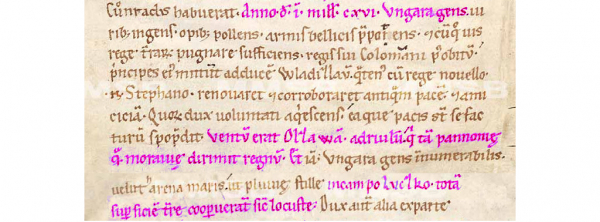 Cunradus habuerat. Anno d. i. mill. cxvi. Ungara gens. ui
rib; ingens. opib; pollens. armis bellicis p̄potens. ⁊ cū q̊ uis
rege t̄rar̄ pugnare sufficiens. regis sui Colomāni p' obitū.
p̄ncipes ei' mittūt ad ducē Wladizlaū. q̄ten' cū rege nouello
n̄. Stephano. renouaret ⁊ corroboraret antiq̄m pacē. ⁊ ami
ciciā. Quor̄ dux uoluntati aq̄escens. ea que pacis sт̄ se fac
turū spopōdit. Ventū erat Olzawā. ad riuulū. q̄ tā pannonię
q̄. morauię dirimit regnū. Et iā. Ungara gens innumerabilis.
uelut harena maris. aut pluuię stille in campo lucsko. totā
sup̄ficiē t̄re coopuerat sic̄ locuste. Dux aut̄ alia ex parte